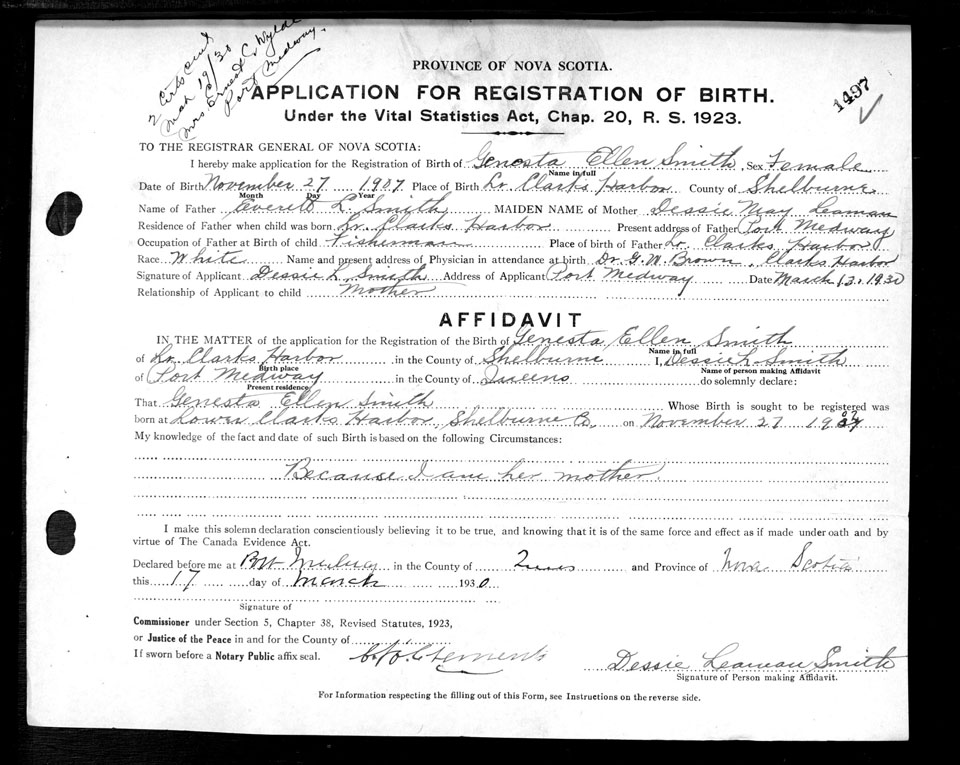 2 Certs sent
Mar 19/30
Mrs. Ernest C. Wylde
Port Medway.
PROVINCE OF NOVA SCOTIA.
1497
APPLICATION FOR REGISTRATION OF BIRTH.
Under the Vital Statistics Act, Chap. 20, R. S. 1923.
TO THE REGISTRAR GENERAL OF NOVA SCOTIA:
I hereby make application for the Registration of Birth of Genesta Ellen Smith, Sex Female
Name in full
Date of Birth November 27 1907 Place of Birth Lr. Clarks Harbor County of Shelburne
Month Day Year
Name of Father Everett L. Smith MAIDEN NAME of Mother Dessie May Leaman
Residence of Father when child was born Lr. Clarks Harbor Present address of Father Port Medway
Occupation of Father at Birth of child Fisherman Place of birth of Father Lr. Clarks Harbor
Race White Name and present address of Physician in attendance at birth Dr. G. M. Brown, Clarks Harbor
Signature of Applicant Dessie L. Smith Address of Applicant Port Medway Date March 13, 1930
Relationship of Applicant to child Mother
AFFIDAVIT
IN THE MATTER of the application for the Registration of the Birth of Genesta Ellen Smith
Name in full
of Lr. Clarks Harbor in the County of Shelburne I, Dessie L. Smith
Birth place Name of person making Affidavit
of Port Medway in the County of Queens do solemnly declare:
Present residence
That Genesta Ellen Smith Whose Birth is sought to be registered was
born at Lower Clarks Harbor, Shelburne Co., on November 27 1907
My knowledge of the fact and date of such Birth is based on the following Circumstances:
Because I am her mother.
I make this solemn declaration conscientiously believing it to be true, and knowing that it is of the same force and effect as if made under oath and by
virtue of The Canada Evidence Act.
Declared before me at Port Medway in the County of Queens and Province of Nova Scotia
this 17 day of March 1930
Signature of
Commissioner under Section 5, Chapter 38, Revised Statutes, 1923,
or Justice of the Peace in and for the County of
If sworn before a Notary Public affix seal. Clements
Dessie Leaman Smith
Signature of Person making Affidavit.
For Information respecting the filling out of this Form, see Instructions on the reverse side.